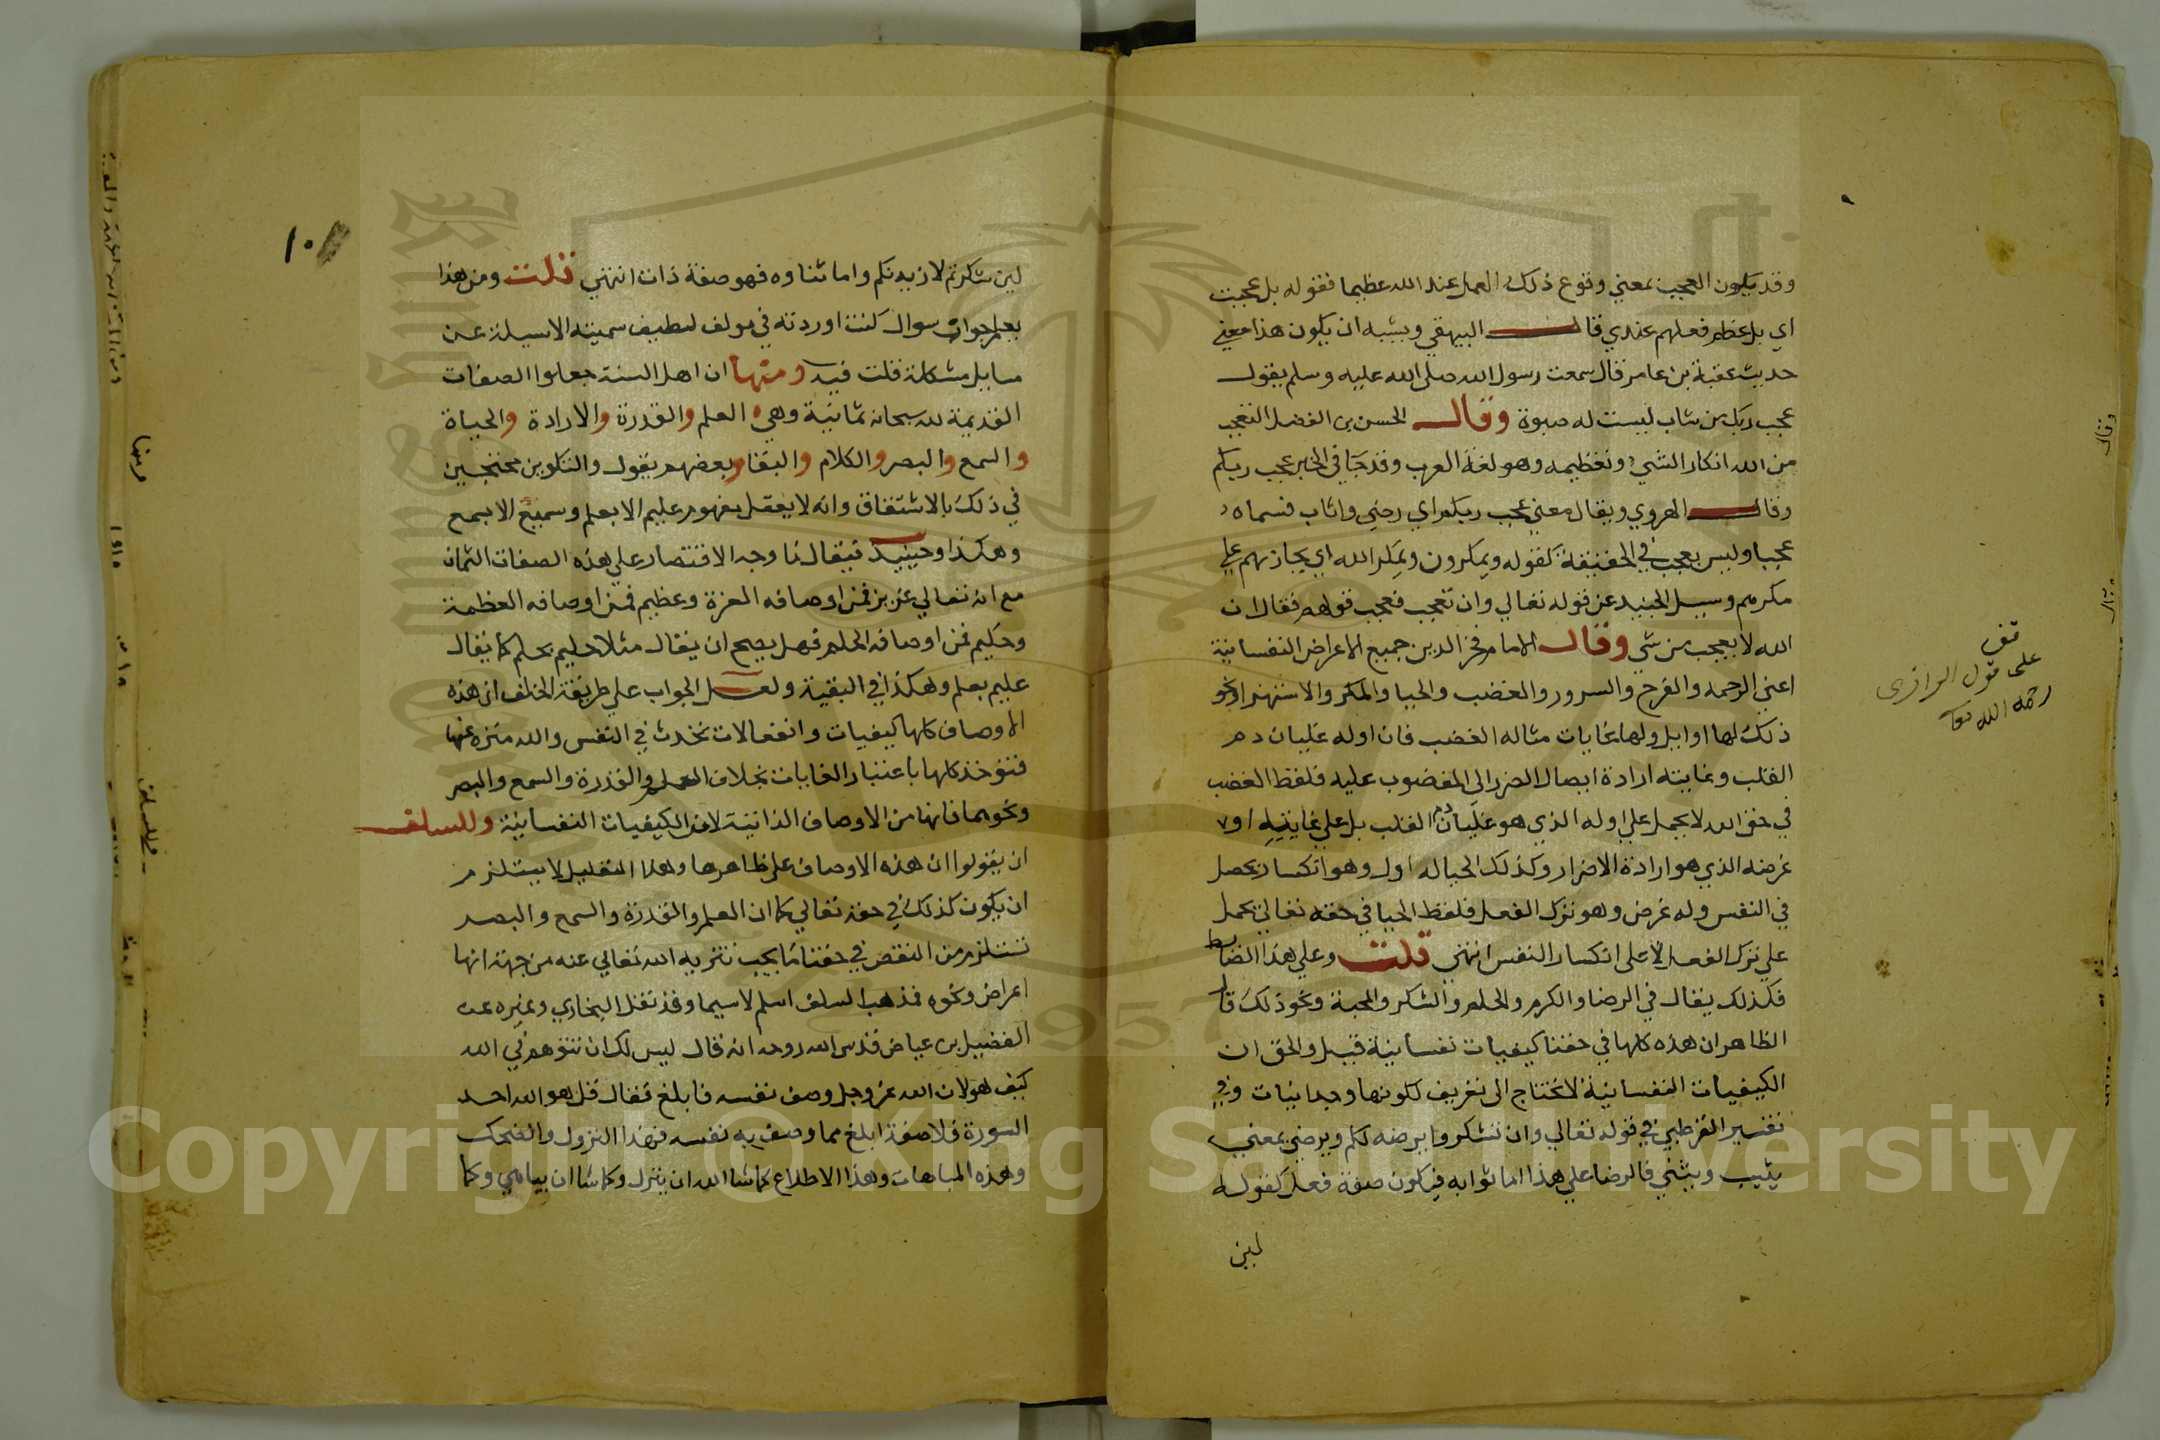 وقد يكون العجب بمعني وقوع ذلك العمل عند الله عظيما فقوله بل عجبت
اي بل عظم فعلهم عندي قال البيهقي ويشبه ان يكون هذا معني
حديث عقبة بن عامر قال سمعت رسول الله صلى الله عليه وسلم يقول
عجب ربك من شاب ليست له صبوة وقال الحسن بن الفضل التعجب
من الله انكار الشي وتعظيمه وهو لغة العرب وقد جا في الخبر عجب ربكم
وقال الهروي ويقال معني عجب ربكم اي رضي واثاب فسماه
عجبا وليس بعجب في الحقيقة كقوله ويمكرون ويمكر الله اي يجازيهم علي
مكرهم وسيل الجنيد عن قوله تعالي وان تعجب فعجب قولهم فقال ان
الله لا يعجب من شي وقال الامام فخر الدين جميع الاعراض النفسانية
اعني الرحمه والفرح والسرور والغضب والحيا والمكر والاستهزا ونحو
ذلك لها اوايل ولها غايات مثاله الغضب فان اوله غليان دم
القلب وغايته ارادة ايصال الضرر الي المغضوب عليه فلفظ الغضب
في حق الله لا يحمل علي اوله الذي هو غليان دم القلب بل علي غايته او
غرضه الذي هو ارادة الاضرار وكذلك الحيا له اول وهو انكسار يحصل
في النفس وله غرض وهو ترك الفعل فلفظ الحيا في حقه تعالي يحمل
علي ترك الفعل لا على انكسار النفس انتهي قلت وعلي هذا الضابط
فكذلك يقال في الرضا والكرم والحلم والشكر والمحبة ونحو ذلك فان
الظاهر ان هذه كلها في حقنا كيفيات نفسانية قيل والحق ان
الكيفيات النفسانية لا تحتاج الى تعريف لكونها وجدانيات وفي
تفسير القرطبي في قوله تعالي وان تشكروا يرضه لكم ويرضي بمعني
يثيب ويثني فالرضا علي هذا اما ثوابه فيكون صفة فعل كقوله
لين
قف
على قول الرازي
رحمه الله تعا
١٠١
لين شكرتم لازيدنكم واما ثناوه فهو صفة ذات انتهي قلت ومن هذا
يعلم جواب سوال كنت اوردته في مولف لطيف سميته الاسيلة عن
مسايل مشكلة قلت فيه ومنها ان اهل السنة جعلوا الصفات
القديمة لله سبحانه ثمانية وهي العلم والقدرة والارادة والحياة
والسمع والبصر والكلام والبقا وبعضهم يقول والتكوين محتجين
في ذلك بالاشتقاق وانه لا يعقل مفهوم عليم الا بعلم وسميع الا بسمع
وهكذا وحينيذ فيقال ما وجه الاقتصار علي هذه الصفات الثمان
مع انه تعالي عزيز فمن اوصافه العزة وعظيم فمن اوصافه العظمة
وحليم فمن اوصافه الحلم فهل يصح ان يقال مثلا حليم بحلم كما يقال
عليم بعلم وهكذا في البقية ولعل الجواب علي طريقة الخلف ان هذه
الاوصاف كلها كيفيات وانفعالات تحدث في النفس والله منزه عنها
فتؤخذ كلها باعتبار الغايات بخلاف العلم والقدرة والسمع والبصر
ونحوها فانها من الاوصاف الذاتية لا من الكيفيات النفسانية وللسلف
ان يقولوا ان هذه الاوصاف على ظاهرها وهذا التعليل لا يستلزم
ان يكون كذلك في حقه تعالي كما ان العلم والقدرة والسمع والبصر
تستلزم من النقص في حقنا ما يجب تنزيه الله تعالي عنه من جهة انها
اعراض ونحوه فمذهب السلف اسلم لاسيما وقد نقل البخاري وغيره عن
الفضيل بن عياض قدس الله روحه انه قال ليس لك ان تتوهم في الله
كيف هو لان الله عز وجل وصف نفسه فابلغ فقال قل هو الله احد
السورة فلا صفة ابلغ مما وصف به نفسه فهذا النزول والضحك
وهذه المباهات وهذا الاطلاع كما شا الله ان ينزل وكما شا ان يباهي وكما
Copyright © King Saud University
1957